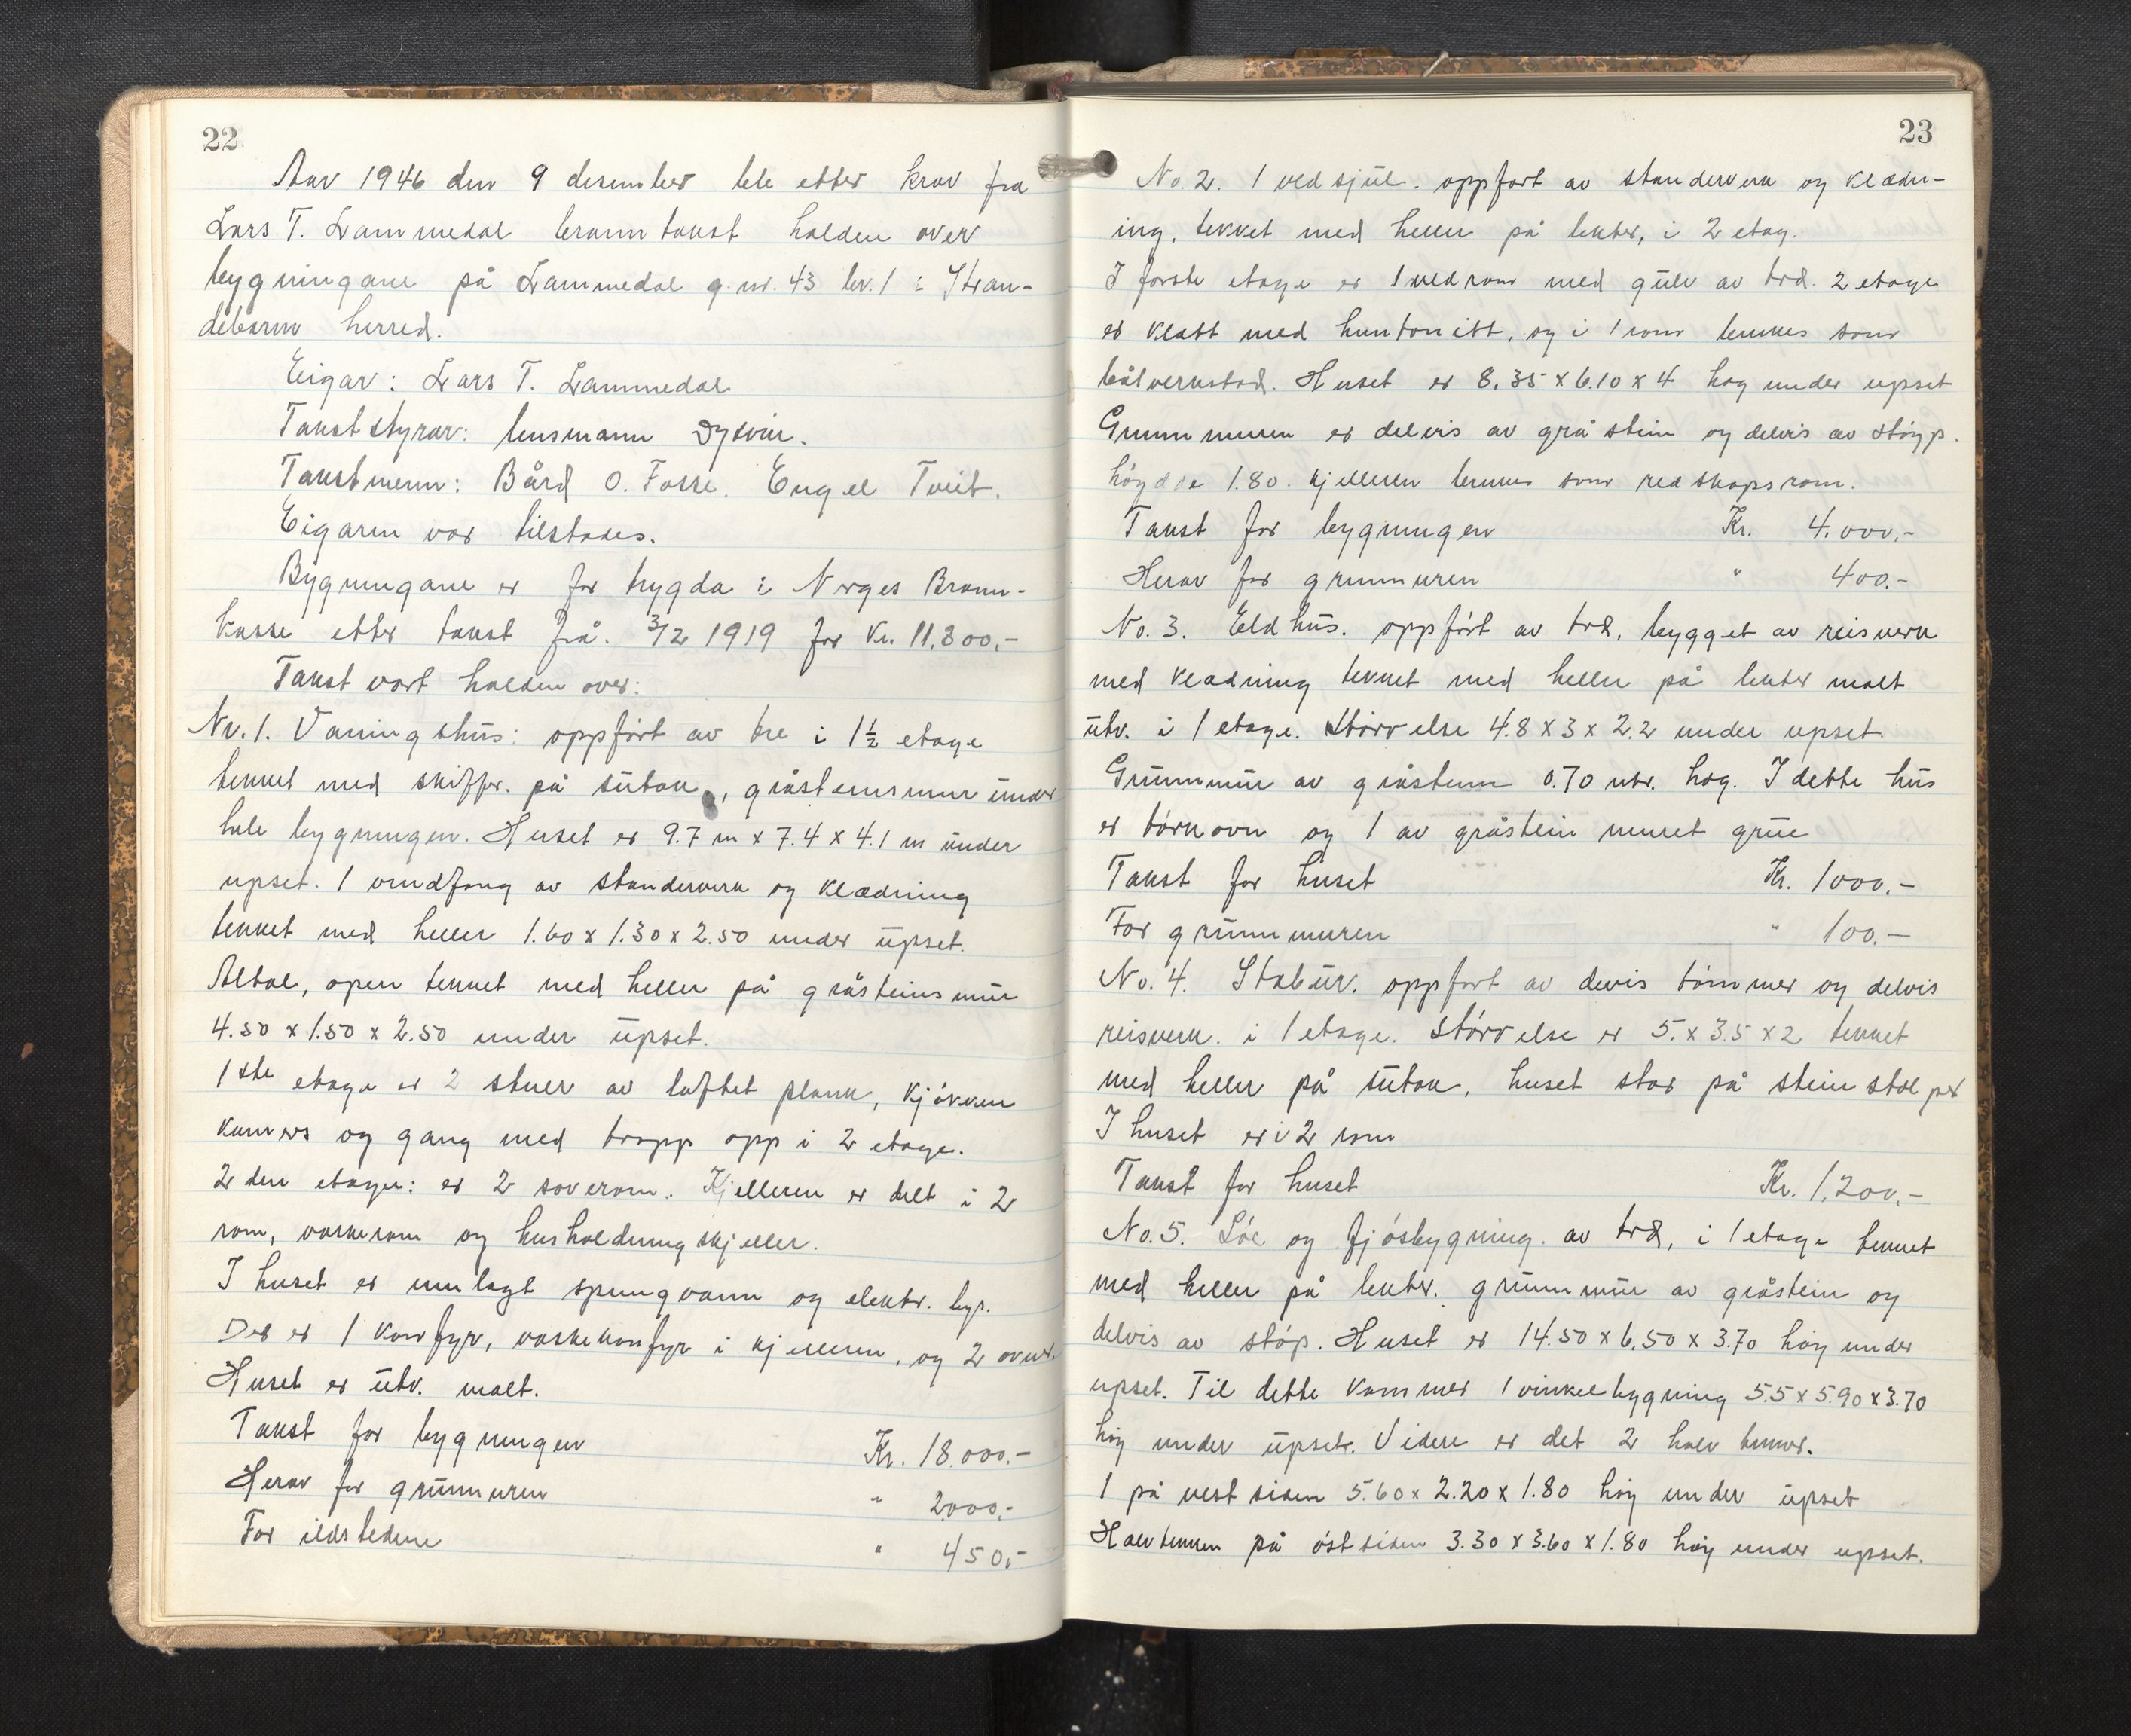 22
Aar 1946 den 9 desember ble etter krav fra
Lars T. Lammedal branntakst halden over
bygningane på Lammedal g.nr. 43 br. 1 i Stran-
debarm herred.
Eigar: Lars T. Lammedal
Takststyrar: lensmann Dysvik.
Takstmenn: Bård O. Fosse. Engel Tveit.
Eigaren var tilstades.
Bygningane er for trygda i Norges Brann-
kasse etter takst frå. 3/2 1919 for Kr. 11.300,-
Takst vart halden over:
Nr. 1. Våningshus: oppført av tre i 1½ etage
tekket med skiffer. på sutak, gråsteinsmur under
hele bygningen. Huset er 9.7 m x 7.4 x 4.1 m under
upset. 1 vindfang av standerverk og klædning
tekket med heller 1.60 x 1.30 x 2.50 under upset.
Altal, open tekket med heller på gråsteinsmur
4.50 x 1.50 x 2.50 under upset.
1ste etage er 2 stuer av laftet plank, kjøkken
kamers og gang med trapp opp i 2 etage.
2den etage: er 2 soverom. Kjelleren er delt i 2
rom, vaskerom og husholdningskjeller.
I huset er innlagt springvann og elektr. lys.
Det er 1 komfyr, vaskekomfyr i kjelleren, og 2 ovner.
Huset er utv. malt.
Takst for bygningen Kr. 18.000.-
Herav for grunnmuren " 2.000,-
For ildstedene " 450,-
23
No. 2. 1 vedsjul. oppført av standerverk og klædn-
ing, tekket med heller på lekter, i 2 etag.
I første etage er 1 vedrom med gulv av træ. 2 etage
er klatt med huntonitt, og i 1 rom brukes som
båtverkstad. Huset er 8.35 x 6.10 x 4 høg under upset
Grunnmuren er delvis av gråstein og delvis av støyp.
høgdde 1.80. kjelleren brukes som redskapsrom.
Takst for bygningen Kr. 4.000,-
Herav for grunnmuren " 400.-
No. 3. Eldhus. oppført av træ, bygget av reisverk
med kledning tekket med heller på lekter malt
utv. i 1 etage. Størrelse 4.8 x 3 x 2.2 under upset.
Grunnmur av gråstein 0.70 mtr. høg. I dette hus
er tørkovn og 1 av gråstein muret grue
Takst for huset Kr. 1000.-
For grunnmuren " 100.-
No. 4. Stabur. oppført av devis tømmer og delvis
reisverk. i 1 etage. Størrelse er 5. x 3.5 x 2 tekket
med heller på sutak, huset står på stein stolper
I huset er i 2 rom
Takst for huset Kr. 1.200.-
No. 5. Løe og fjøsbygning. av træ, i 1 etage tekket
med heller på lekter. grunnmur av gråstein og
delvis av støp. Huset er 14.50 x 6.50 x 3.70 høy under
upset. Til dette kommer 1 vinkelbygning 5.5 x 5.90 x 3.70
høy under upset. Videre er det 2 halv tekker.
1 på vestsiden 5.60 x 2.20 x 1.80 høy under upset
Halvtekken på østsiden 3.30 x 3.60 x 1.80 høy under upset.